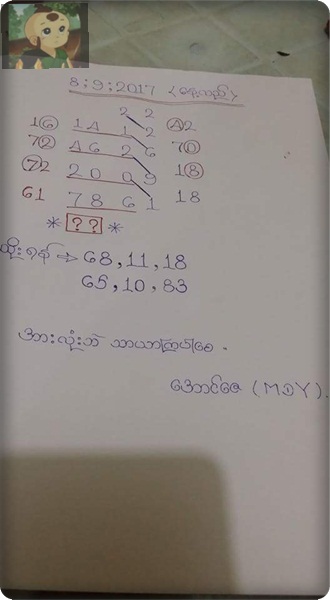 8;9;2017 (နေ့လည်)
2 2
1⑥ 1 4 1 2 ④2
7② 4 6 2 6 7⓪
⑦2 2 0 0 9 1⑧
61 7 8 6 1 18
* ?? *
ထိုးရန် ⇒ 68, 11, 18
65, 10, 83
အားလုံးဘဲ သာယာကြပါစေ .
အောင်ဇေ (MDY).